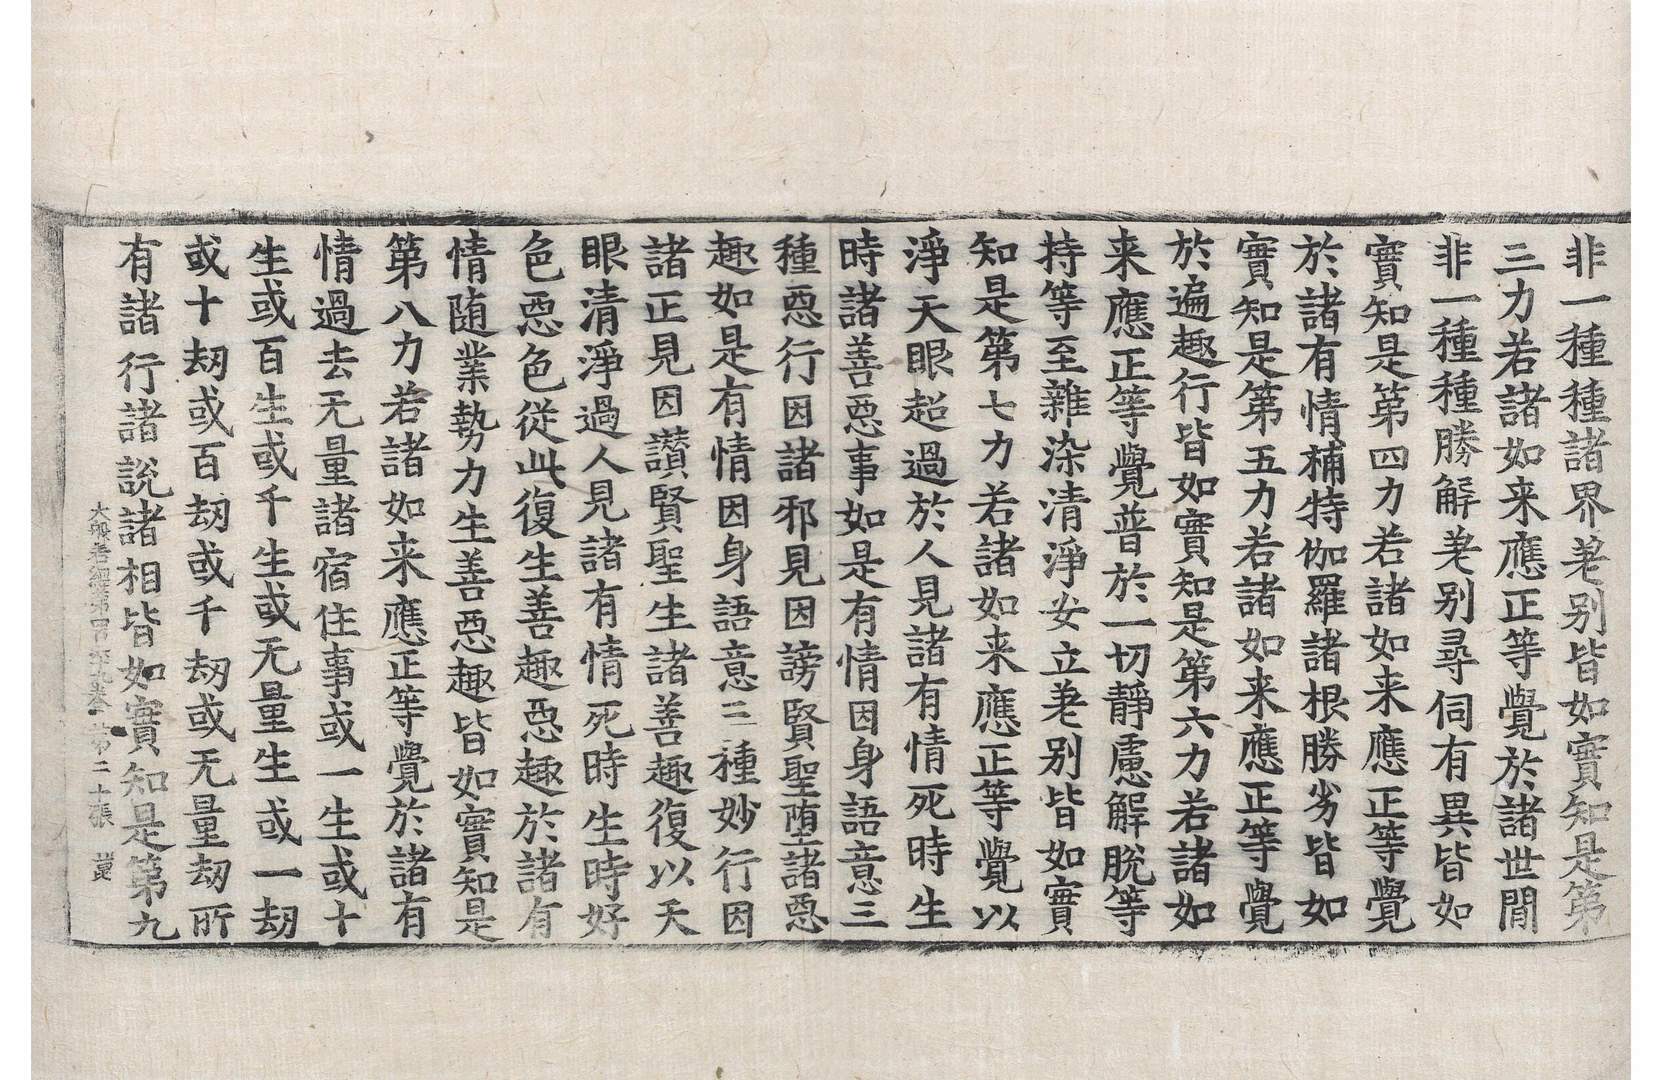 非一種種諸界差别皆如實知是第
三力若諸如来應正等覺於諸世間
非一種種勝解差别尋伺有異皆如
實知是第四力若諸如来應正等覺
於諸有情補特伽羅諸根勝劣皆如
實知是第五力若諸如来應正等覺
於遍趣行皆如實知是第六力若諸如
来應正等覺普於一切靜慮解脫等
持等至雜染清淨安立差别皆如實
知是第七力若諸如来應正等覺以
淨天眼超過於人見諸有情死時生
時諸善惡事如是有情因身語意三
種惡行因諸邪見因謗賢聖墮諸惡
趣如是有情因身語意三種妙行因
諸正見因讃賢聖生諸善趣復以天
眼清淨過人見諸有情死時生時好
色惡色從此復生善趣惡趣於諸有
情随業勢力生善惡趣皆如實知是
第八力若諸如来應正等覺於諸有
情過去无量諸宿住事或一生或十
生或百生或千生或无量生或一劫
或十劫或百劫或千劫或无量劫所
有諸行諸說諸相皆如實知是第九
大般若經第四百十九卷 第二十張